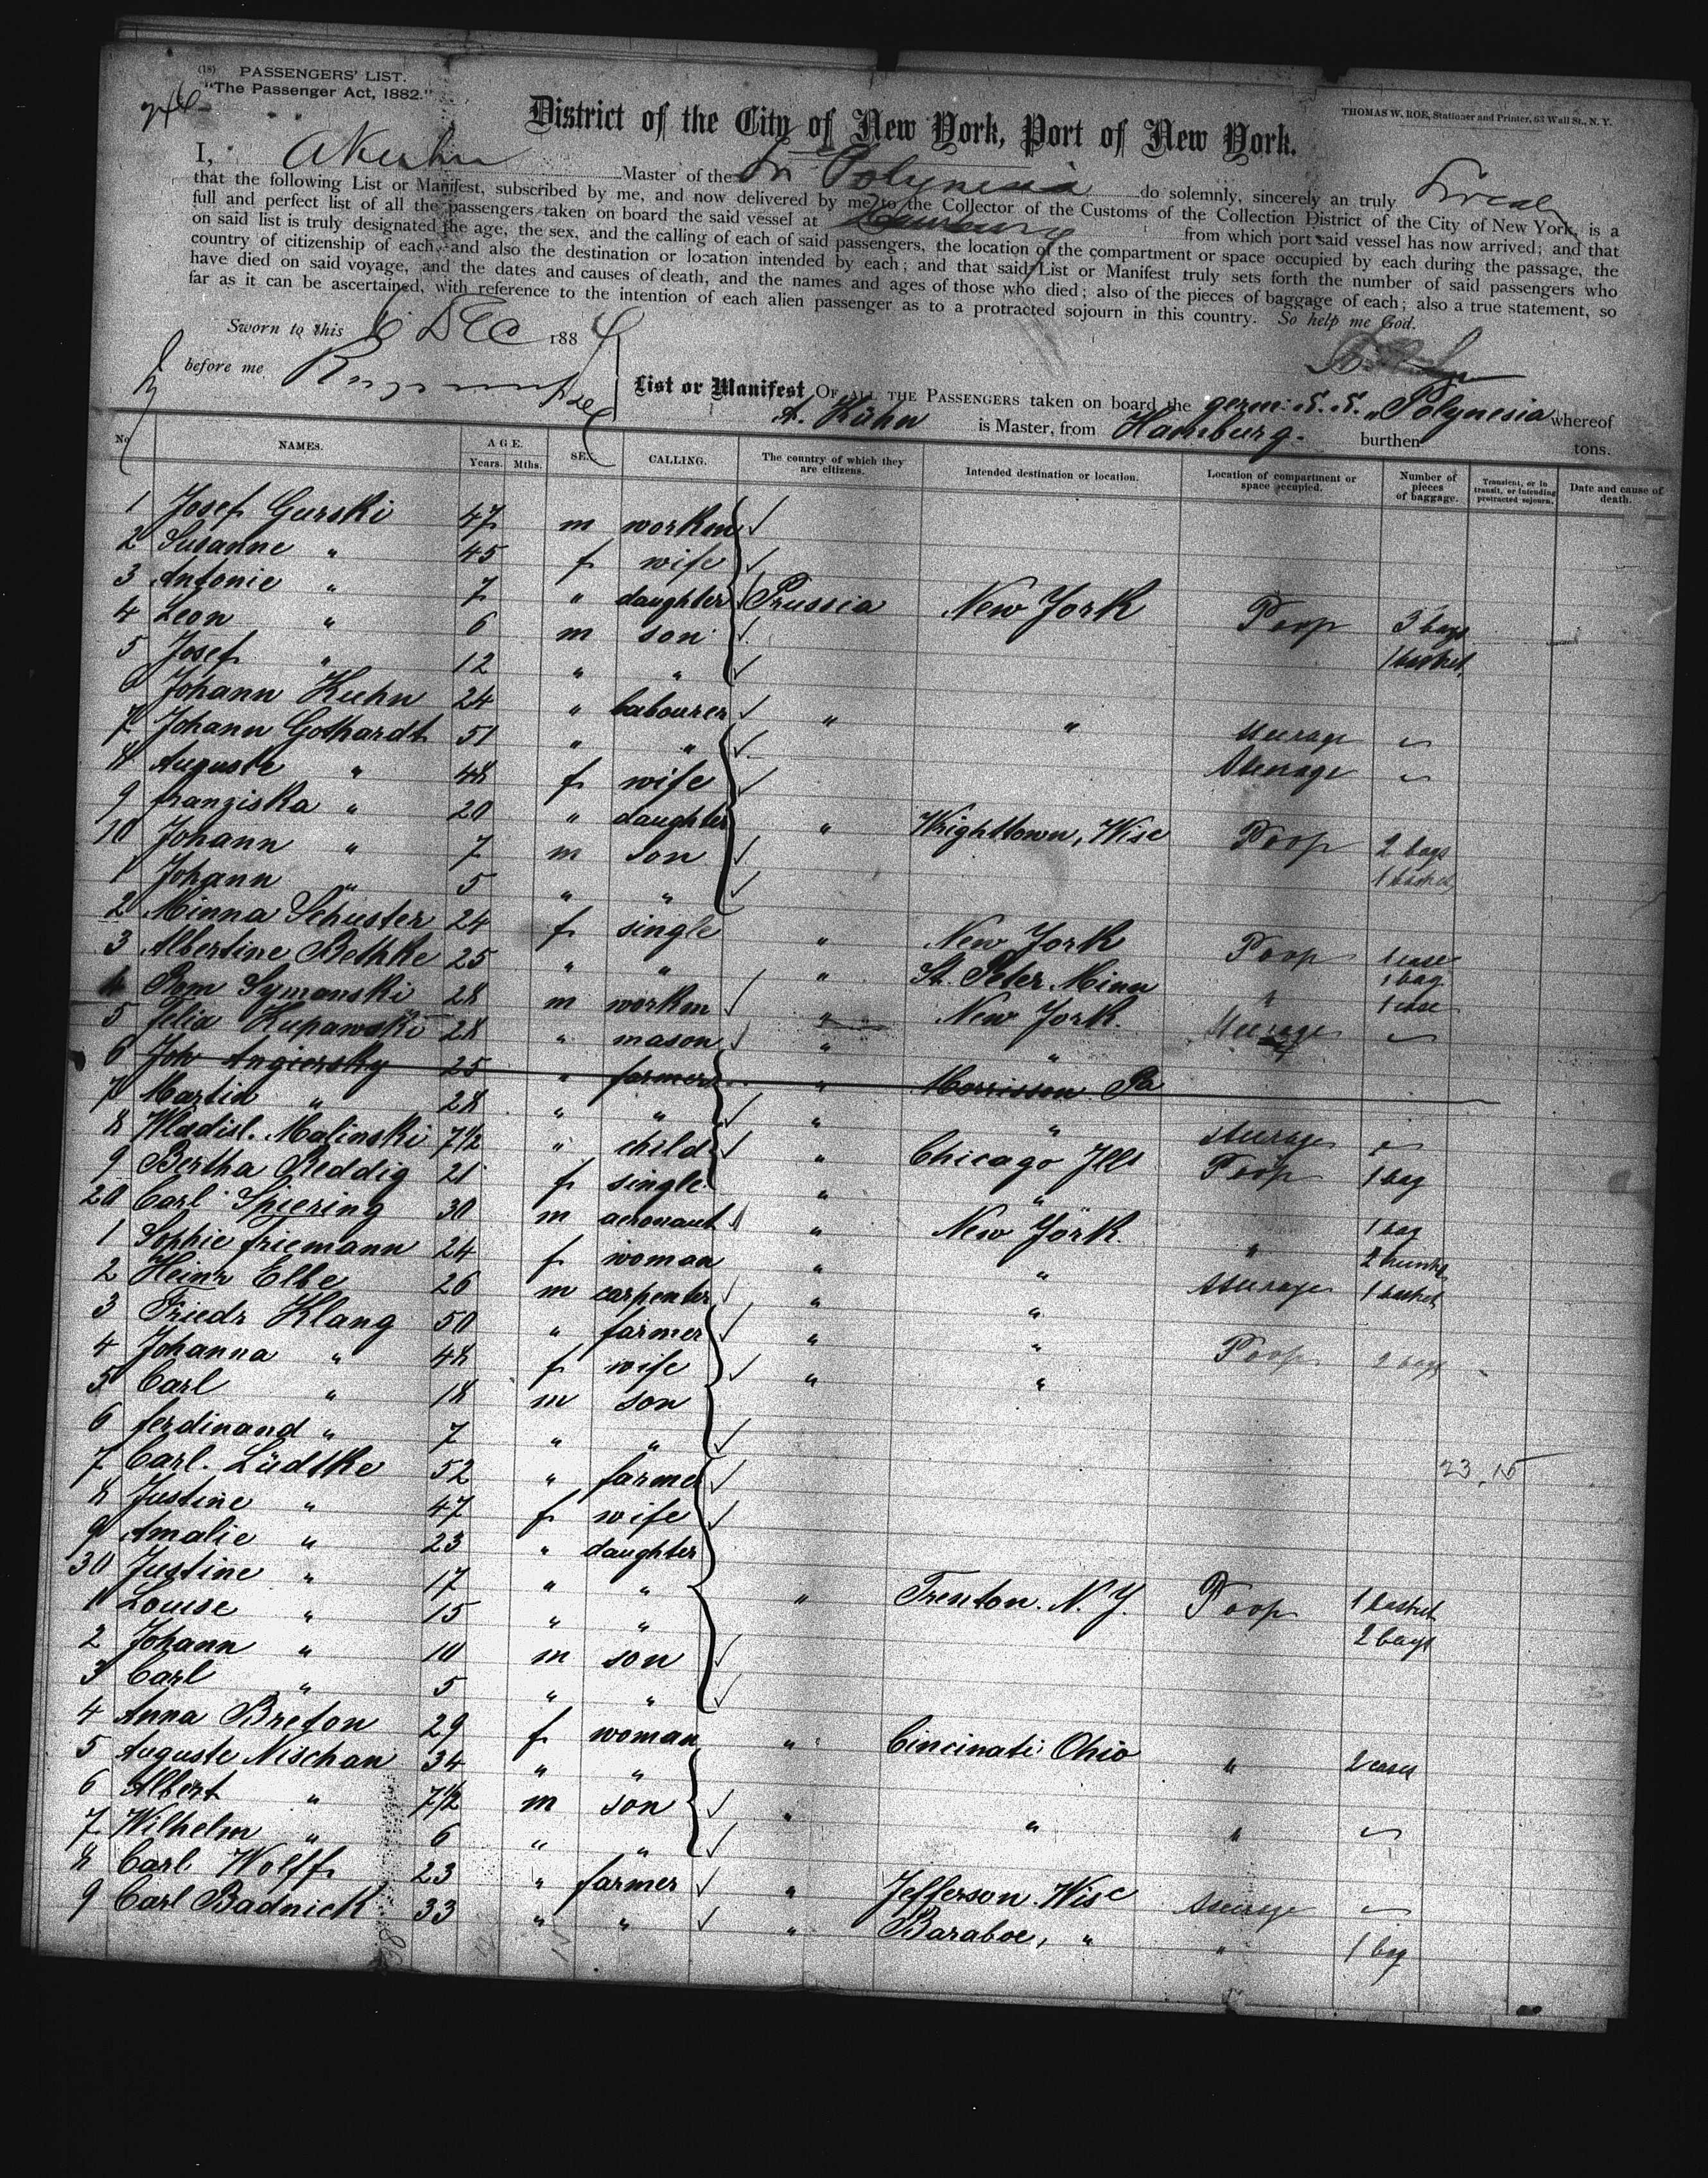 (18) PASSENGERS' LIST.
"The Passenger Act, 1882."
THOMAS W. ROE, Stationer and Printer, 63 Wall St., N. Y.
District of the City of New York, Port of New York.
I, A Kuhn Master of the Polynesia do solemnly, sincerely an truly
that the following List or Manifest, subscribed by me, and now delivered by me to the Collector of the Customs of the Collection District of the City of New York, is a
full and perfect list of all the passengers taken on board the said vessel at Hamburg from which port said vessel has now arrived; and that
on said list is truly designated the age, the sex, and the calling of each of said passengers, the location of the compartment or space occupied by each during the passage, the
country of citizenship of each, and also the destination or location intended by each; and that said List or Manifest truly sets forth the number of said passengers who
have died on said voyage, and the dates and causes of death, and the names and ages of those who died; also of the pieces of baggage of each; also a true statement, so
far as it can be ascertained, with reference to the intention of each alien passenger as to a protracted sojourn in this country. So help me God.
Sworn to this 6 DEC 1884
before me
List or Manifest OF ALL THE PASSENGERS taken on board the germ. S.S. "Polynesia" whereof
A. Kühn is Master, from Hamburg. burthen tons.
No. NAMES. AGE. Years. Mths. SEX. CALLING. The country of which they are citizens. Intended destination or location. Location of compartment or space occupied. Number of pieces of baggage. Transient, or in transit, or intending protracted sojourn. Date and cause of death.
1 Josef Gurski 47 m workm
2 Susanne " 45 f wife
3 Antonie " 7 " daughter Prussia New York Poop 3 bags
4 Leon " 6 m son 1 basket
5 Josef " 12 " "
6 Johann Kuhn 24 " labourer " " Steerage
7 Johann Gothardt 51 " " Steerage
8 Auguste " 48 f wife
9 franziska " 20 " daughter " Wrighttown, Wisc Poop 2 bags
10 Johann " 7 m son 1 basket
1 Johann " 5 " "
2 Minna Schuster 24 f single " New York Poop 1 case
3 Albertine Bethke 25 " " " St. Peter Minn " 1 bag 1 case
4 Rom Symanski 28 m workm " New York. Steerage
5 Felix Kupawski 28 " mason " "
6 Joh Angiersky 25 " farmer " Morrisson Pa
7 Martin " 28 " " " " Steerage
8 Wladisl. Malinski 7 1/2 " child " Chicago Ills Poop 1 bag
9 Bertha Reddig 21 f single " "
20 Carl Spiering 30 m aeronaut " New York. " 1 bag
1 Sophie friemann 24 f woman " " 2 trunks
2 Heinr Elbe 26 m carpenter " " Steerage 1 basket
3 Friedr Klang 50 " farmer " " Poop 2 bags
4 Johanna " 48 f wife " "
5 Carl " 18 m son
6 ferdinand " 7 " "
7 Carl. Lüdtke 52 " farmer 23.15
8 Justine " 47 f wife
9 Amalie " 23 " daughter
30 Justine " 17 " " " Trenton. N.Y. Poop 1 basket
1 Louise " 15 " " 2 bags
2 Johann " 10 m son
3 Carl " 5 " "
4 Anna Breton 29 f woman " Cincinati Ohio " 2 cases
5 Auguste Nischan 34 " "
6 Albert " 7 1/2 m son " " "
7 Wilhelm " 6 " "
8 Carl Wolff 23 " farmer " Jefferson. Wisc Steerage
9 Carl Badnick 33 " " " Baraboe, " " 1 bag